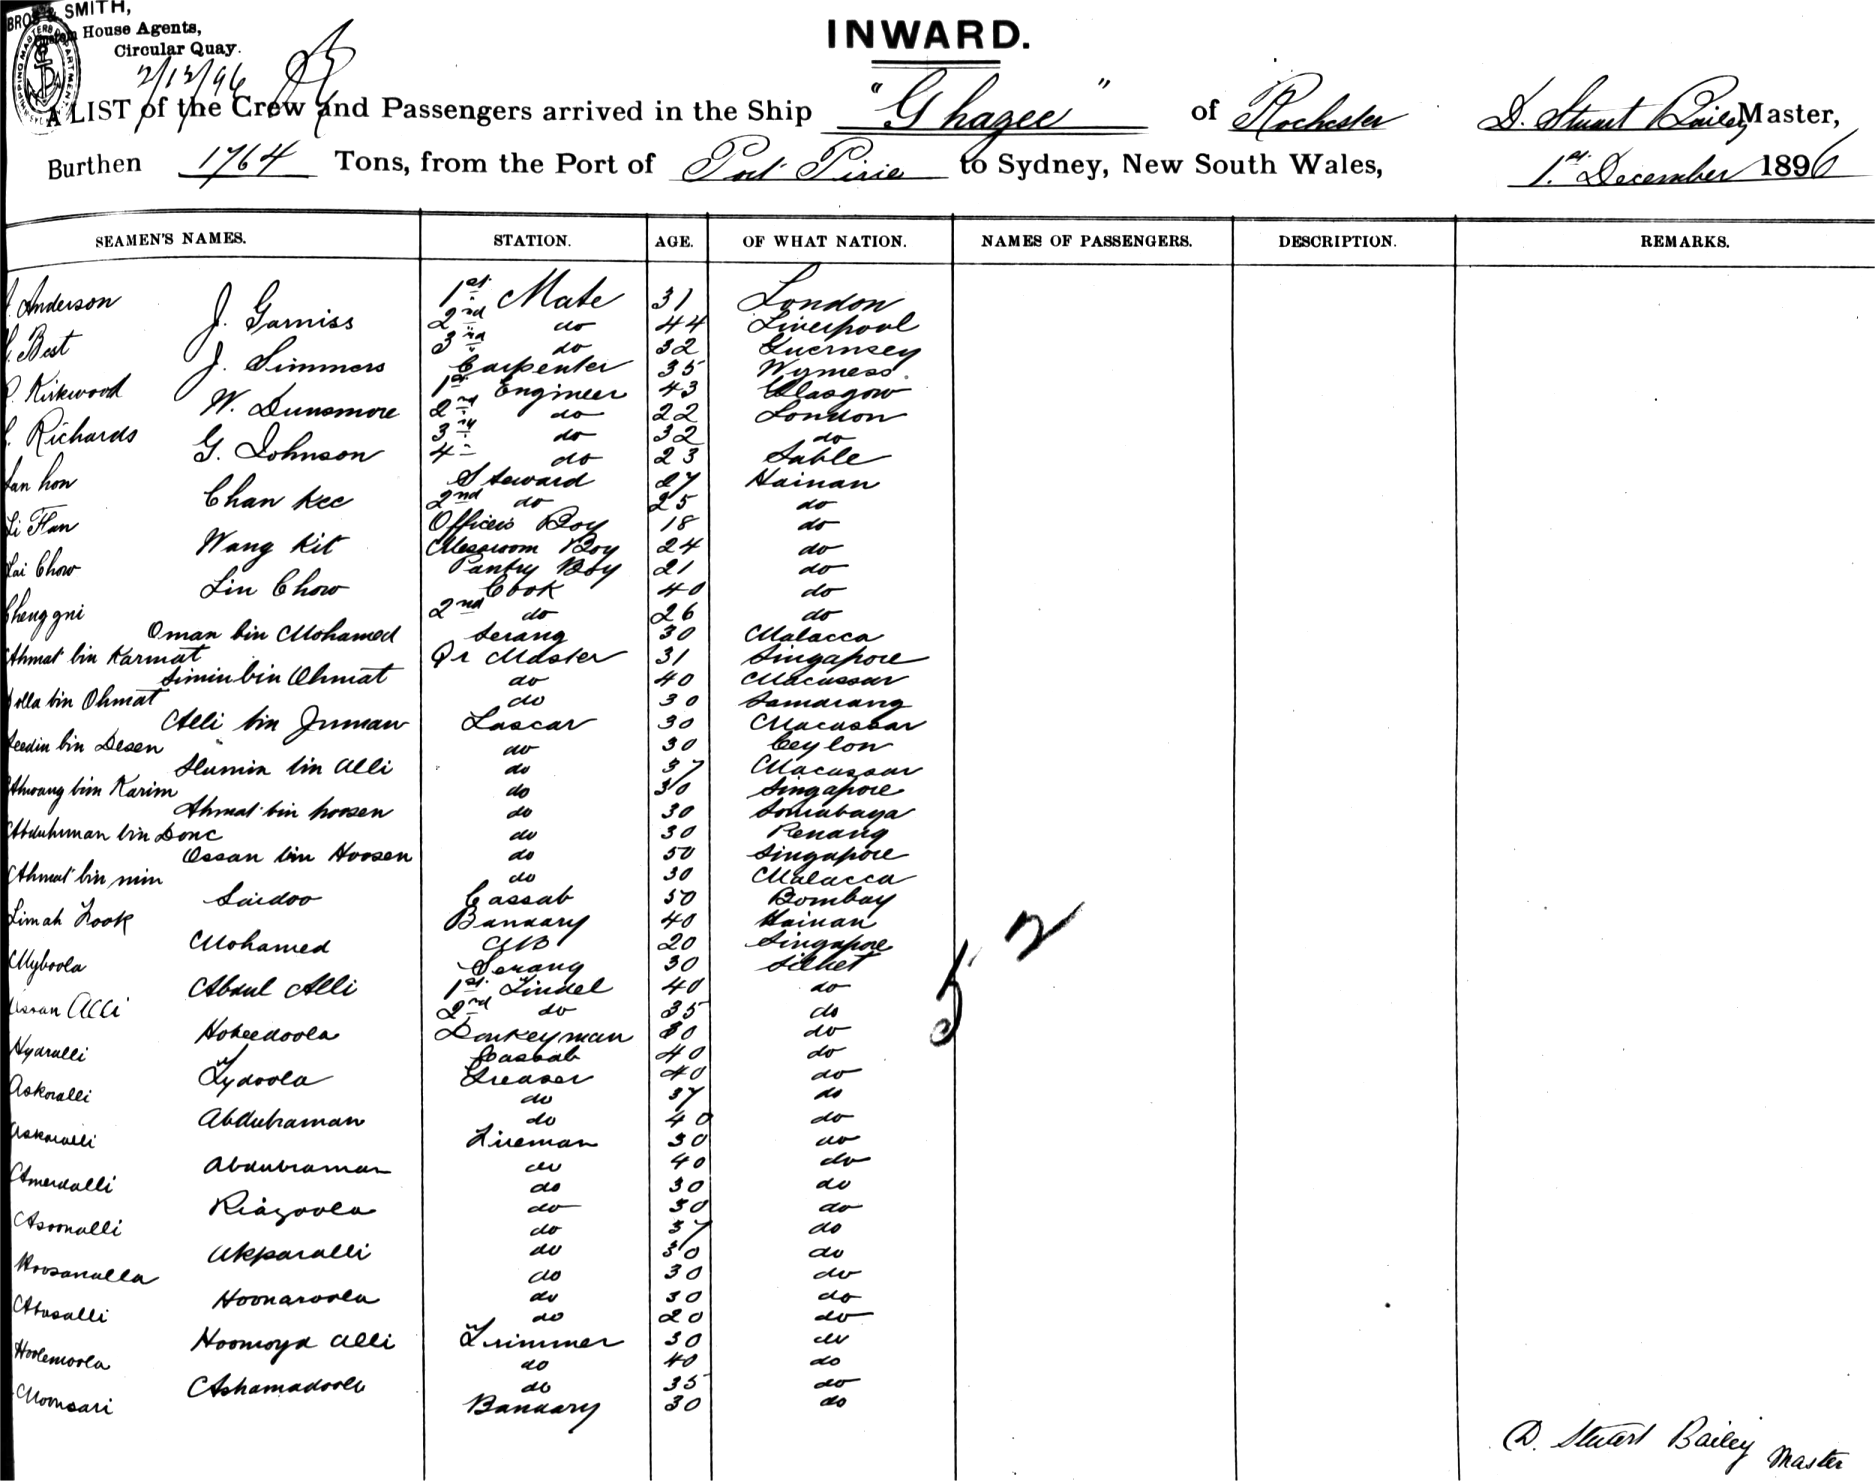 BROS & SMITH,
Custom House Agents,
Circular Quay.
2/12/96
INWARD.
A LIST of the Crew and Passengers arrived in the Ship "Ghazee" of Rochester D. Stuart Bailey Master,
Burthen 1764 Tons, from the Port of Port Pirie to Sydney, New South Wales, 1st December 1896
SEAMEN'S NAMES. STATION. AGE. OF WHAT NATION. NAMES OF PASSENGERS. DESCRIPTION. REMARKS.
Anderson 1st Mate 31 London
J. Garniss 2nd do 44 Liverpool
Best 3rd do 32 Guernsey
J. Simmers Carpenter 35 Wymess
Kirkwood 1st Engineer 43 Glasgow
W. Dunsmore 2nd do 22 London
Richards 3rd do 32 do
G. Johnson 4 do 23 Sable
hon Steward 27 Hainan
Chan Kee 2nd do 25 do
Li Flan Officers Boy 18 do
Wang Kit Messroom Boy 24 do
Lai Chow Pantry Boy 21 do
Lin Chow Cook 40 do
Cheng gni 2nd do 26 do
Oman bin Mohamed Serang 30 Malacca
Ahmat bin Karmat Qr Master 31 Singapore
Simin bin Ohmat do 40 Macassar
bin Ohmat do 30 Samarang
Alli bin Juman Lascar 30 Macassar
bin Desen do 30 Ceylon
Slumin bin Alli do 37 Macassar
Ahwang bin Karim do 30 Singapore
Ahmat bin hoosen do 30 Sourabaya
Abduhman bin Donc do 30 Penang
Ossan bin Hoosen do 50 Singapore
Ahmat bin min do 30 Malacca
Saidoo Cassab 50 Bombay
Limah Fook Bandary 40 Hainan
Mohamed AB 20 Singapore
Myboola Serang 30 Silhet
Abdul Alli 1st Tindel 40 do
Assan Alli 2nd do 35 do
Hokeedoola Donkeyman 30 do
Hydralli Cassab 40 do
Tydoola Greaser 40 do
Askoralli do 37 do
Abduhraman do 40 do
Askoralli Fireman 30 do
Abduhraman do 40 do
Amerdalli do 30 do
Riazoola do 30 do
Asoonalli do 37 do
Akparalli do 30 do
Hoosanulla do 30 do
Hoonaroola do 30 do
Abasalli do 20 do
Hoomoya Alli Trimmer 30 do
Hoolemoola do 40 do
Ashamadoole do 35 do
Moonsari Bandary 30 do
52
D. Stuart Bailey Master